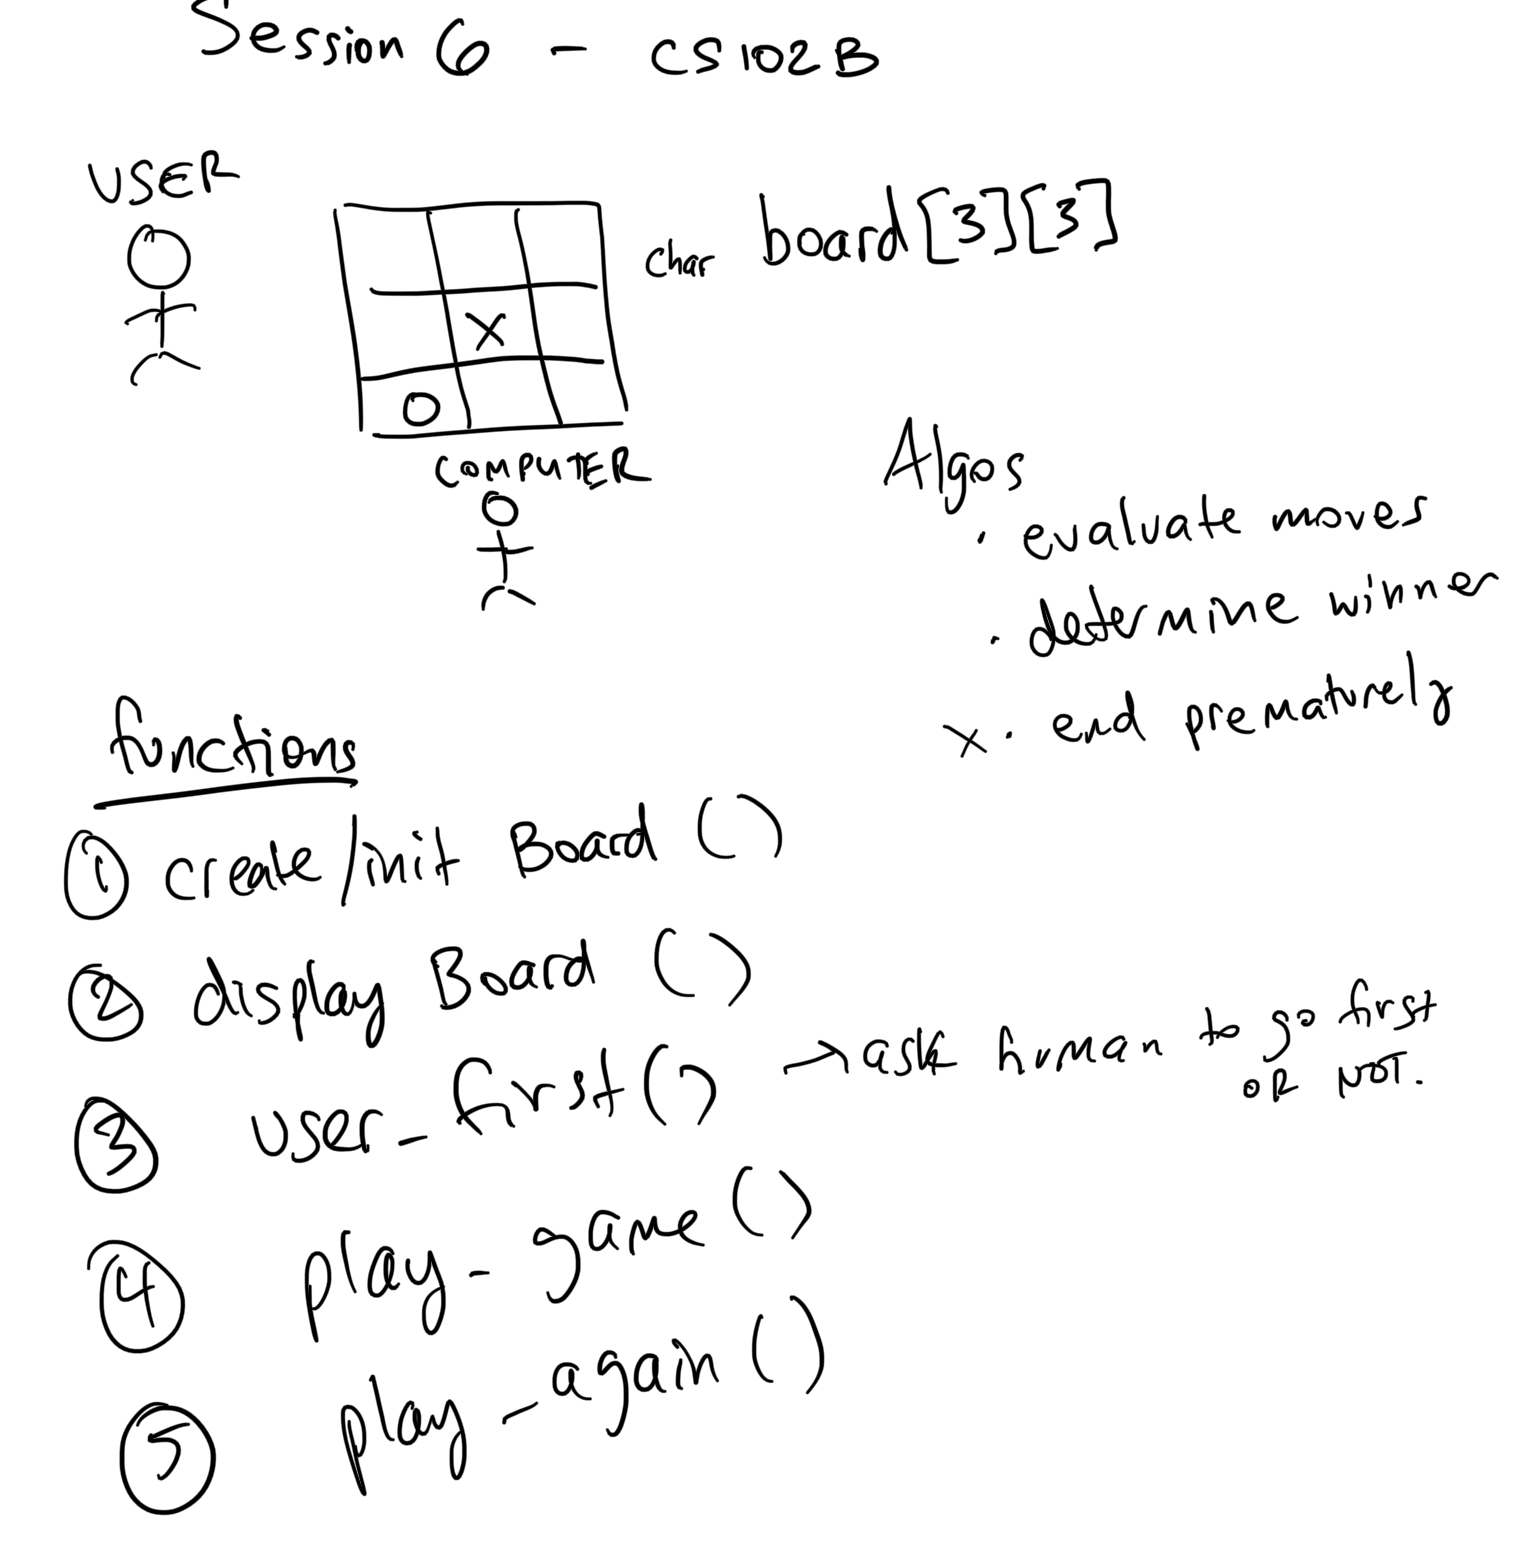 Session 6 - CS102B
USER
char board[3][3]
X
O
COMPUTER
Algos
· evaluate moves
· determine winner
x · end prematurely
functions
① create/init Board ()
② display Board ()
③ user_first() → ask human to go first
OR NOT.
④ play_game()
⑤ play_again()